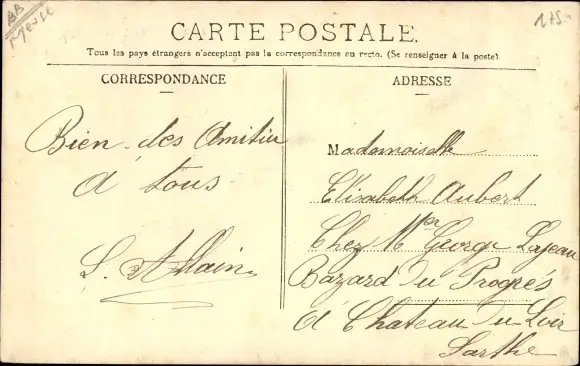 AB
Meuse
175
CARTE POSTALE.
Tous les pays étrangers n'acceptent pas la correspondance au recto. (Se renseigner à la poste)
CORRESPONDANCE
Bien des Amitiés
à tous
S. Allain
ADRESSE
Mademoiselle
Elisabeth Aubert
Chez Mr George Lajeau
Bazard du Progrés
à Chateau du Loir
Sarthe